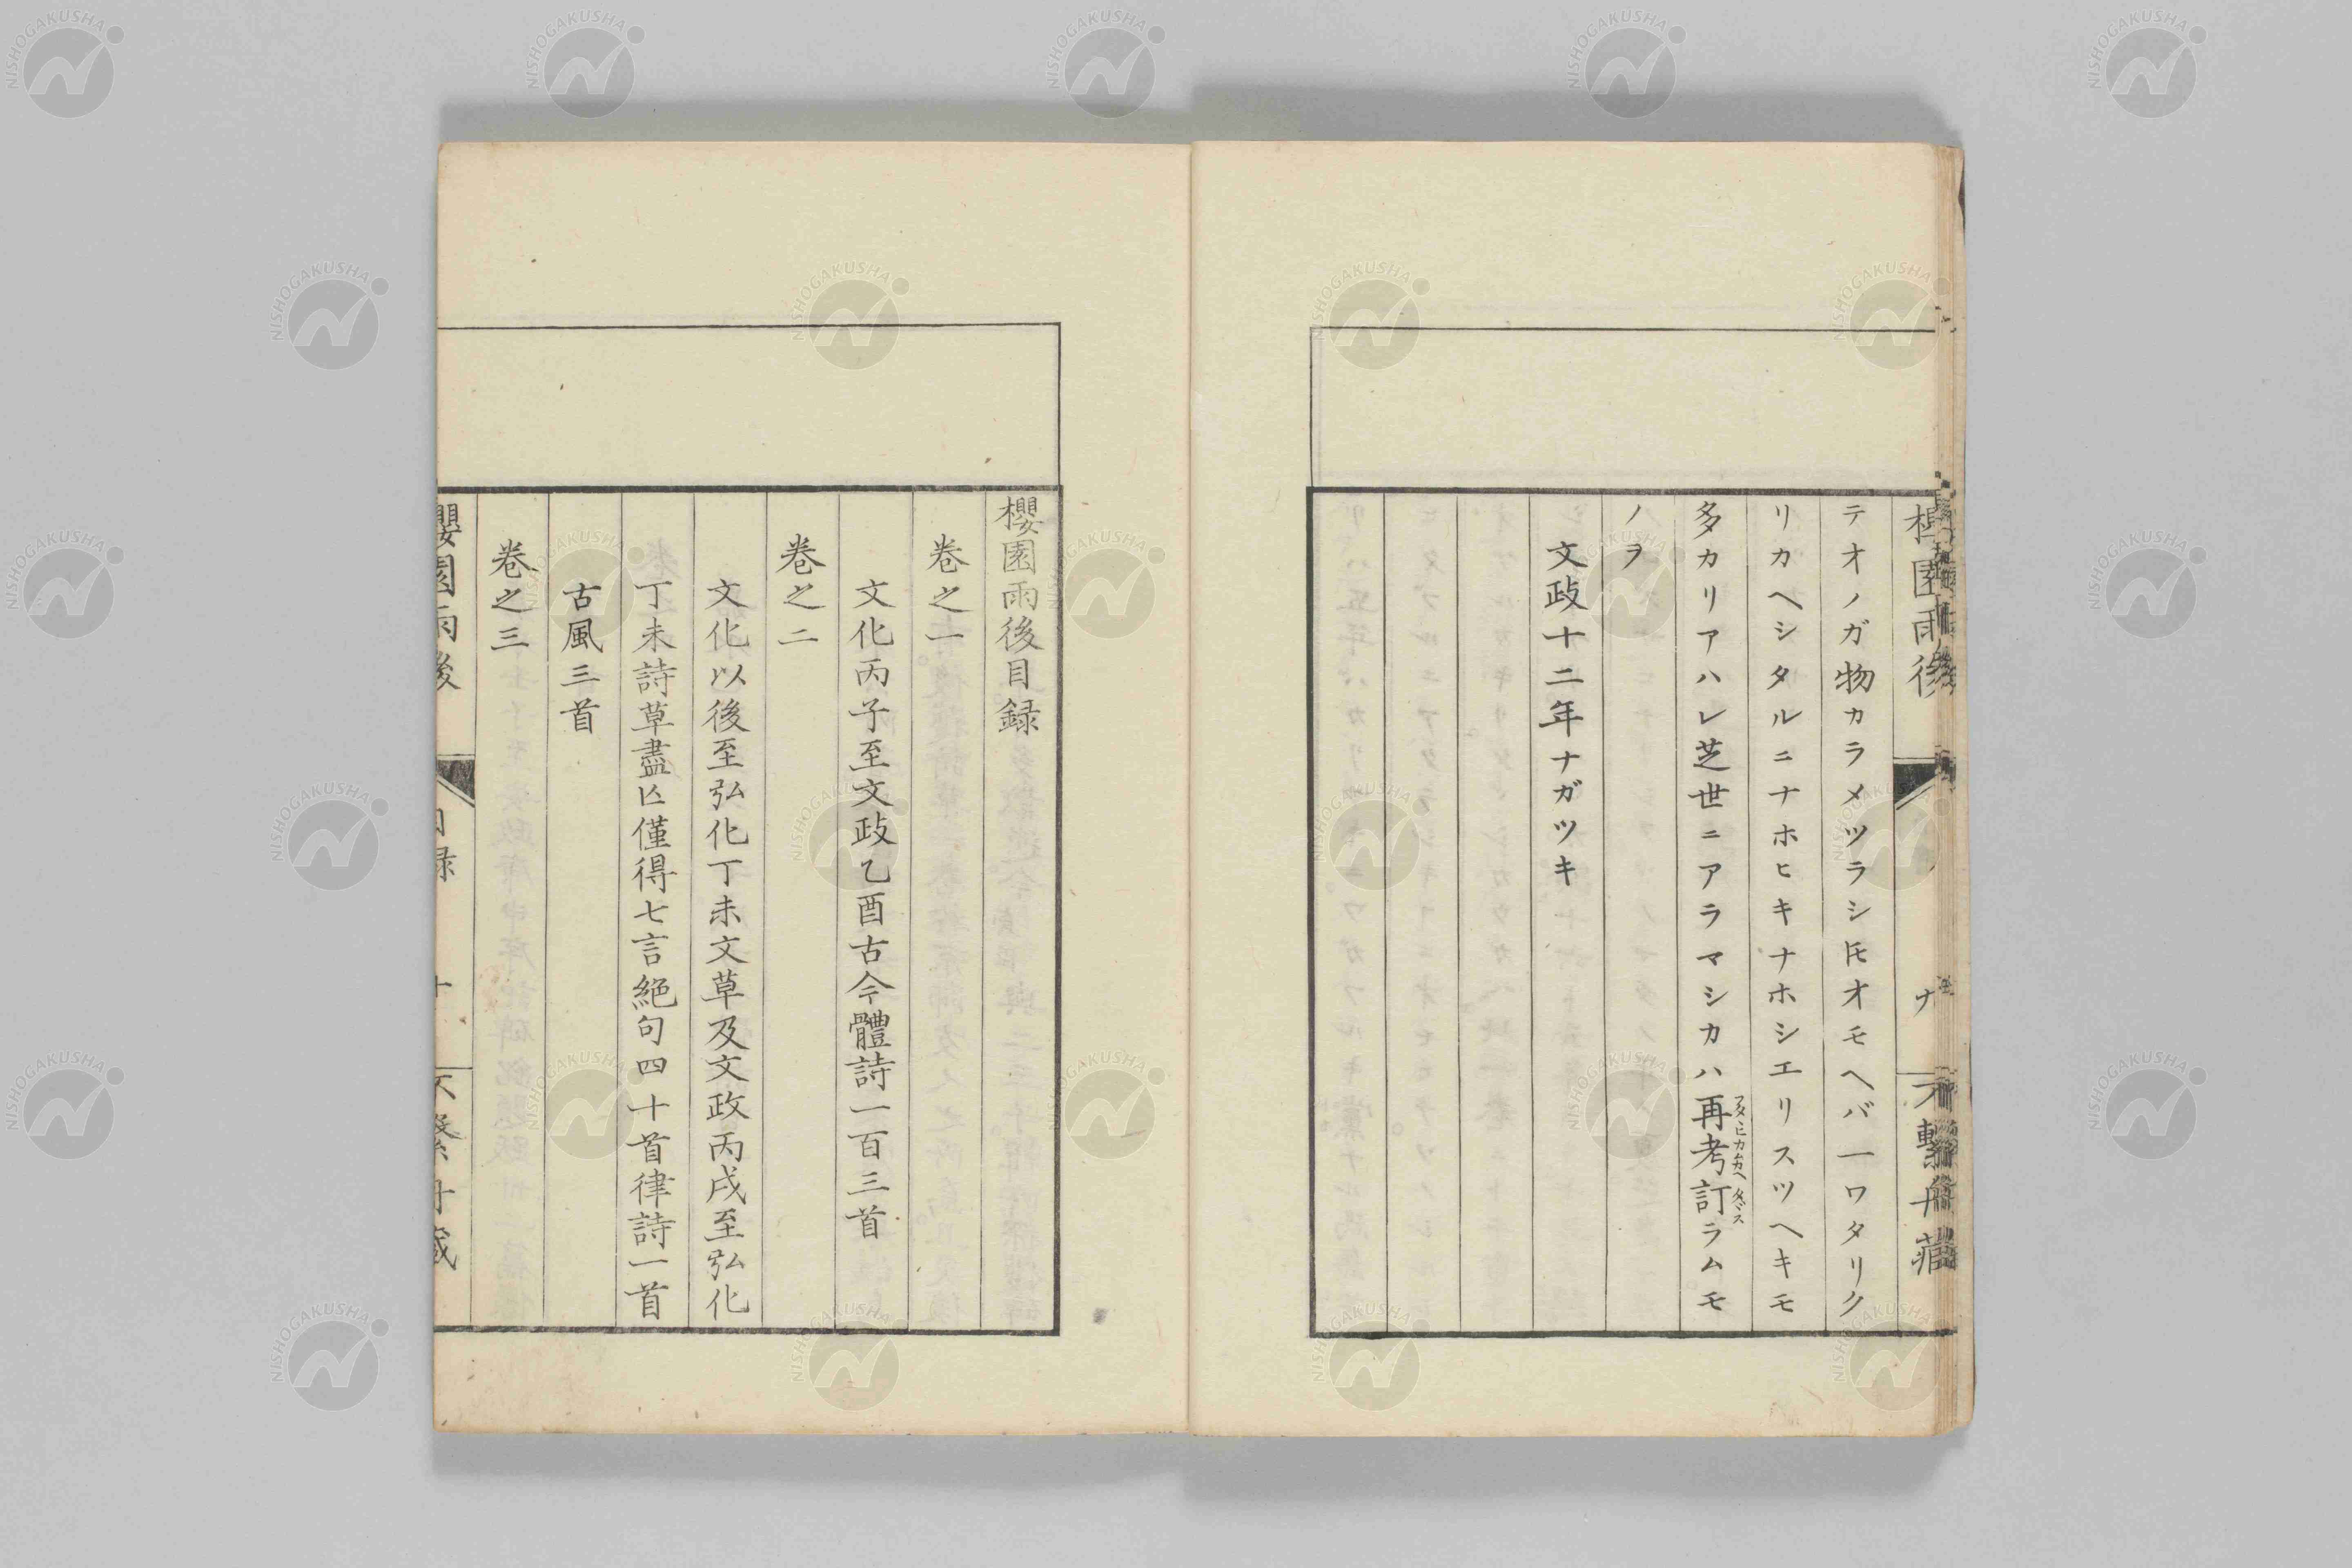 テオノガ物カラメツラシ𪜈オモヘバ一ワタリク
リカヘシタルニナホヒキナホシエリスツヘキモ
多カリアハレ芝世ニアラマシカハ再考訂ラムモ
ノヲ
文政十二年ナガツキ
櫻園雨後目録
卷之一
文化丙子至文政乙酉古今體詩一百三首
卷之二
文化以後至弘化丁未文草及文政丙戌至弘化
丁未詩草盡亾僅得七言絕句四十首律詩一首
古風三首
卷之三
櫻園雨後
目録
NISHOGAKUSHA